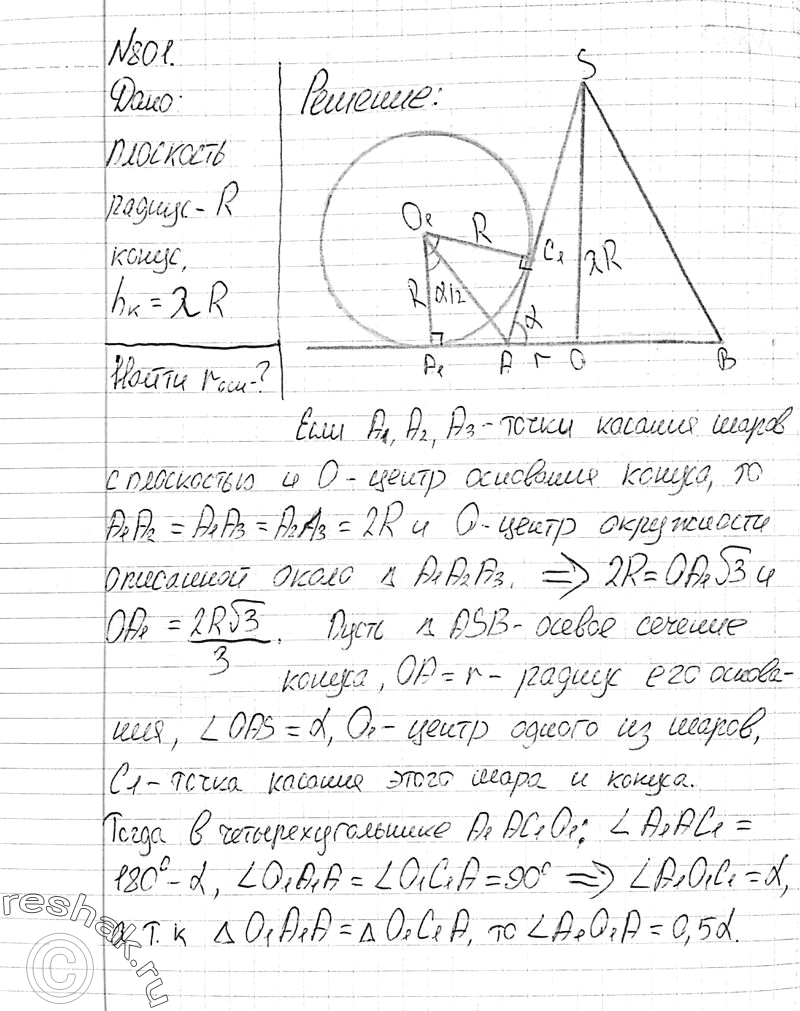 N801.
Дано:
плоскость
радиус - R
конус,
hк = λR
Найти rосн-?
Решение:
S
O₁
R
C₁
λR
R
α/2
α
A₁
A
r
O
B
Если A₁, A₂, A₃ - точки касания шаров
с плоскостью и O - центр основания конуса, то
A₁A₂ = A₁A₃ = A₂A₃ = 2R и O - центр окружности
описанной около Δ A₁A₂A₃. ⇒ 2R = OA₁√3 и
OA₁ = 2R√3/3. Пусть Δ ASB - осевое сечение
конуса, OA = r - радиус его основа-
ния, ∠OAS = α, O₁ - центр одного из шаров,
C₁ - точка касания этого шара и конуса.
Тогда в четырехугольнике A₁AC₁O₁: ∠A₁AC₁ =
180° - α, ∠O₁A₁A = ∠O₁C₁A = 90° ⇒ ∠A₁O₁C₁ = α,
а т.к Δ O₁A₁A = Δ O₁C₁A, то ∠A₁O₁A = 0,5α.
reshak.ru
©